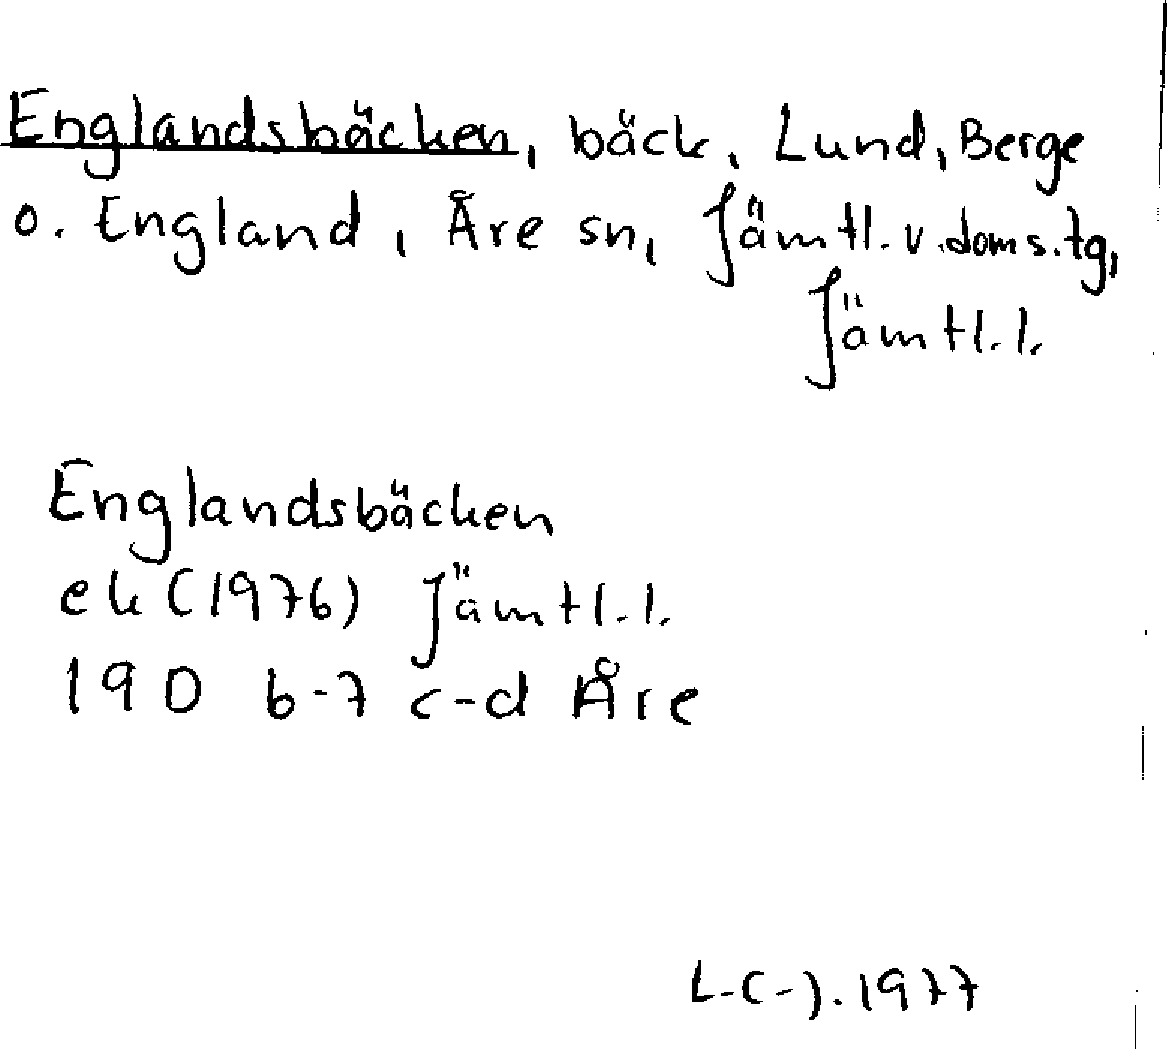 Englandsbäcken, bäck, Lund, Berge
o. England, Åre sn, Jämtl. v. doms. tg,
Jämtl. l.
Englandsbäcken
ek (1976) Jämtl. l.
19D 6-7 c-d Åre
1977